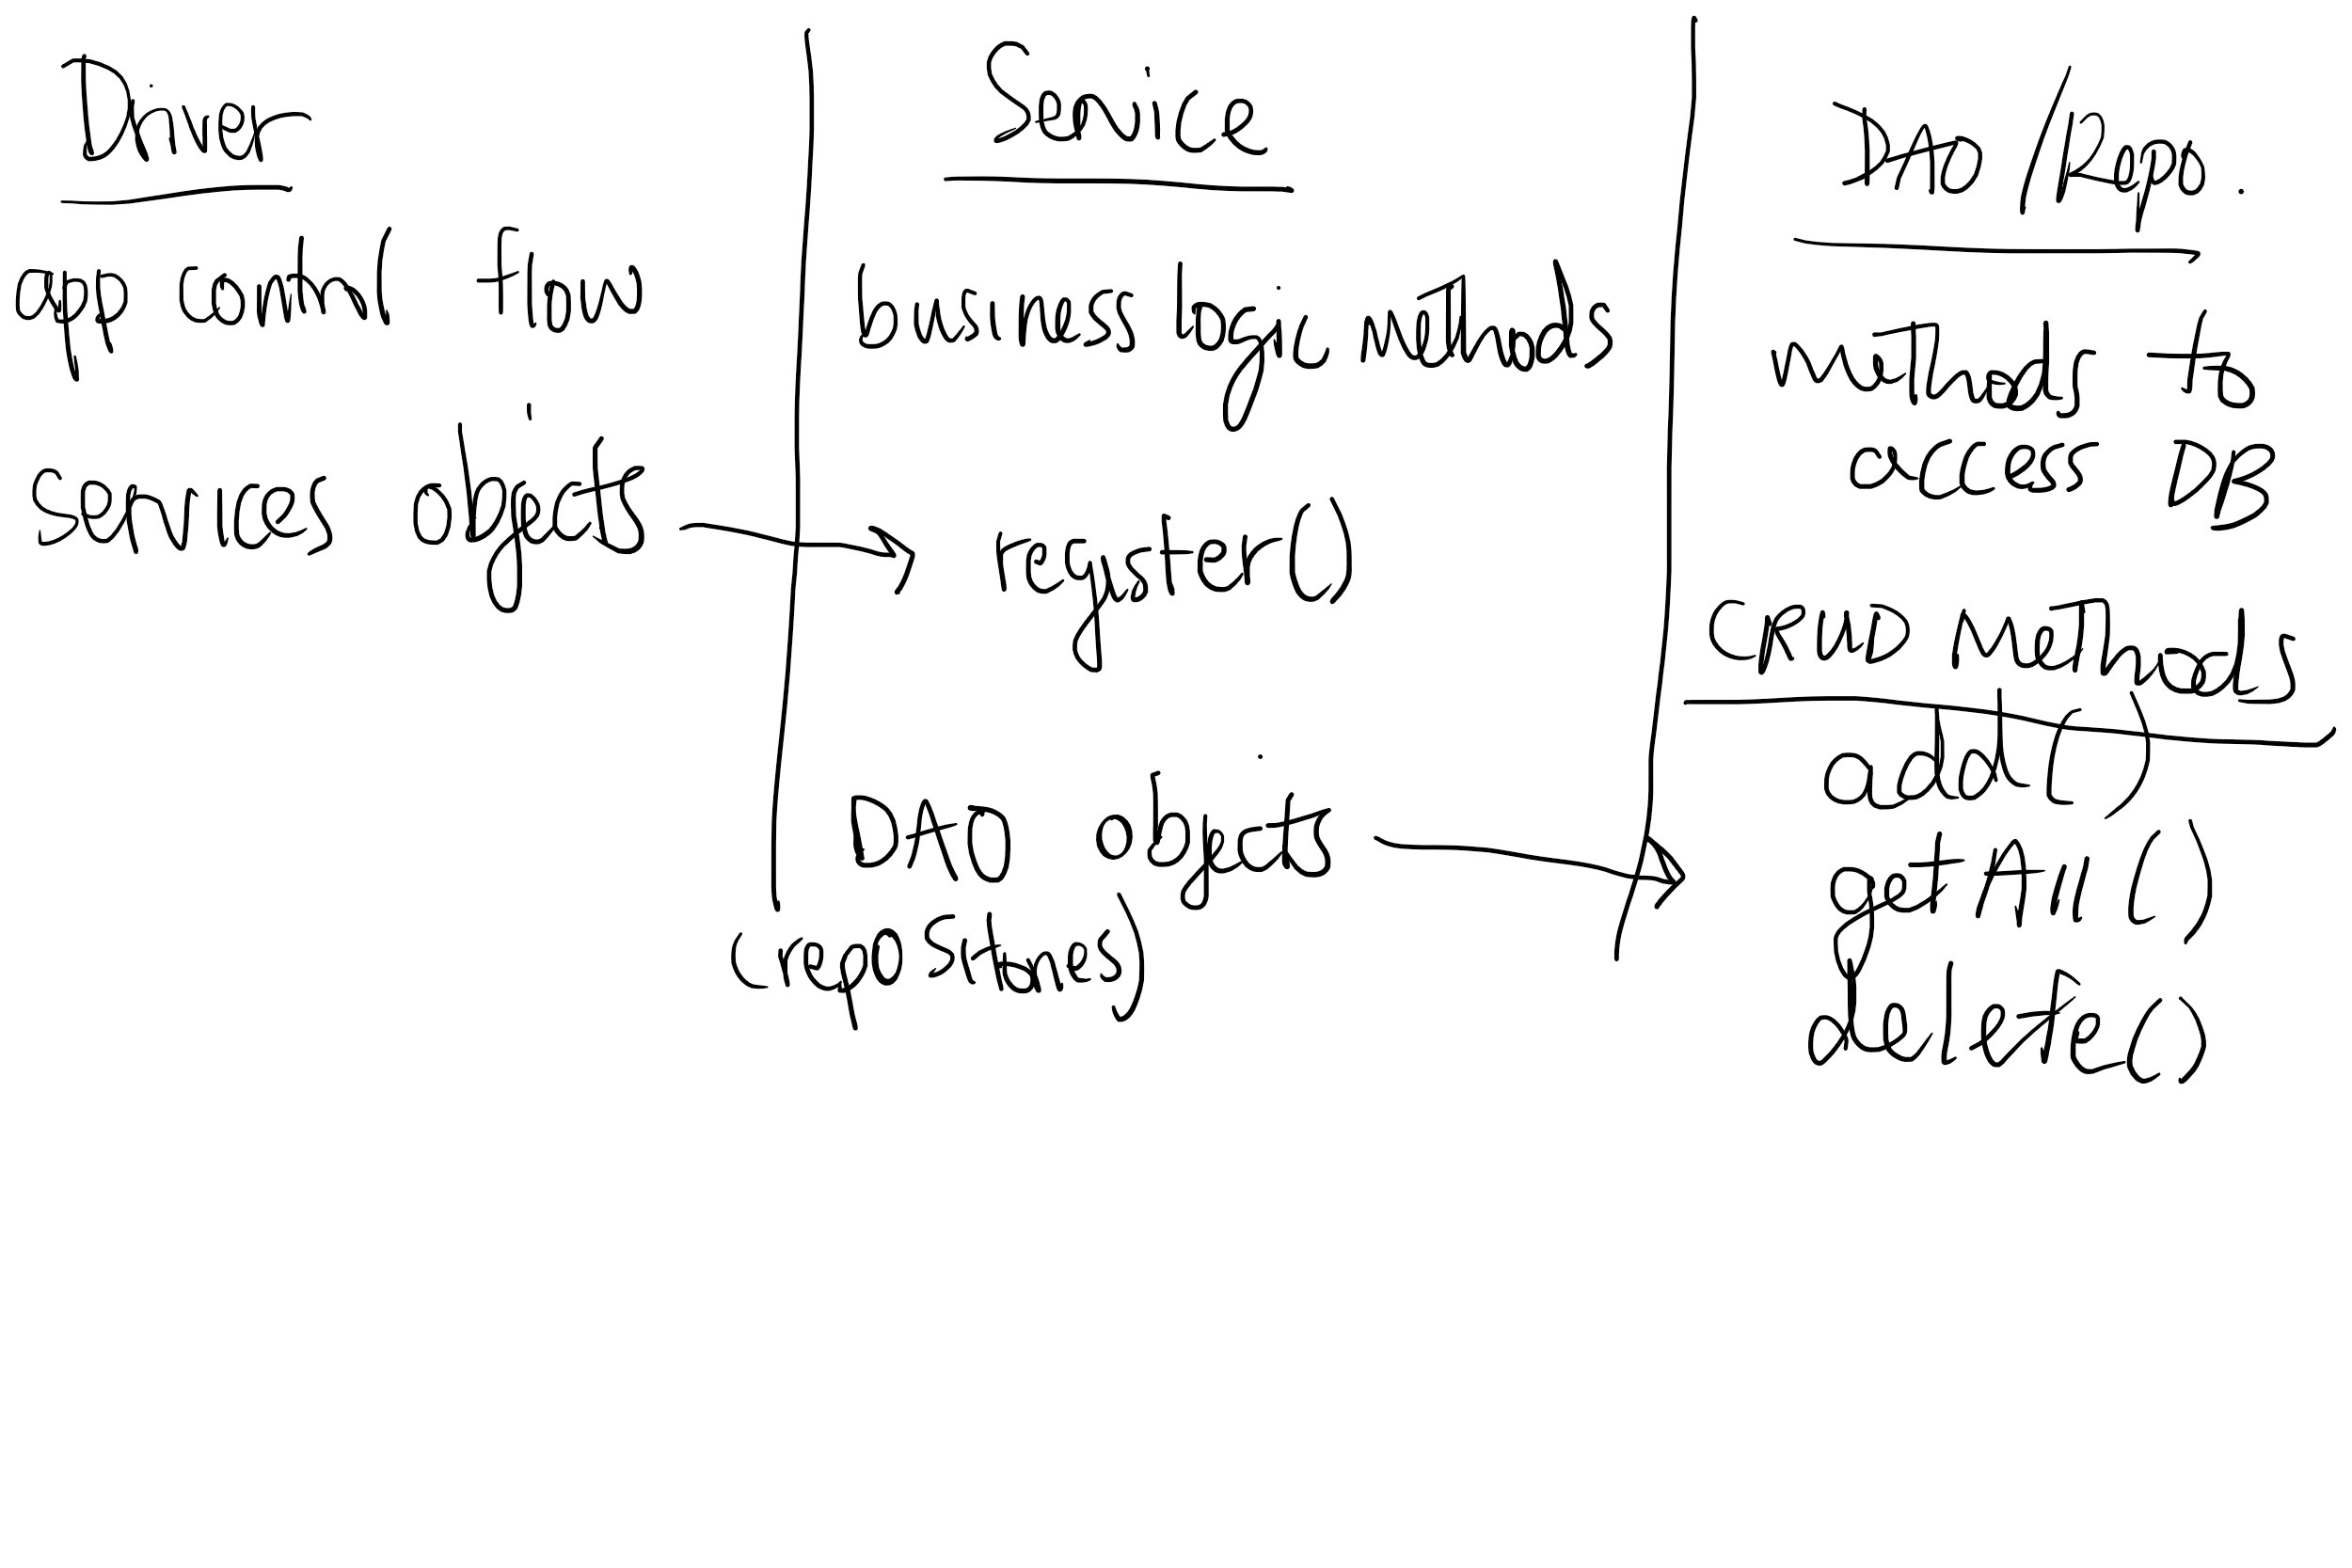 Driver
app control flow
services objects
Service
business logic methods
register()
DAO objects
(repositories)
DAO/Repo.
methods to
access DB
CRUD methods
add()
getAll()
delete()